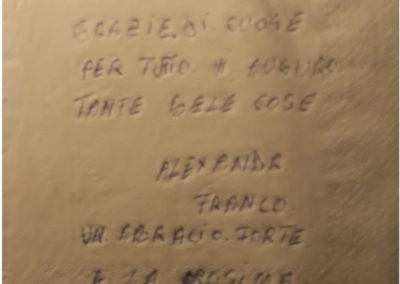 GRAZIE. DI CUORE
PER TUTTO. VI AUGURO
TANTE BELE COSE
ALEXANDR
FRANCO.
UN. ABRACIO. FORTE
A LA PROSIMA